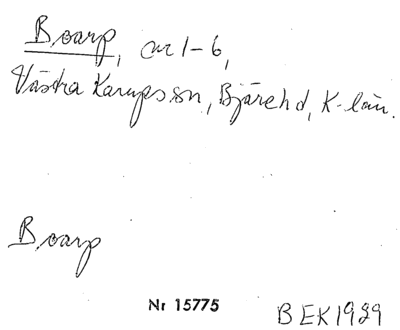 Boarp, nr 1-6,
Västra Karups sn, Bjäre hd, K-län.
Boarp
Nr 15775
BEK 1989